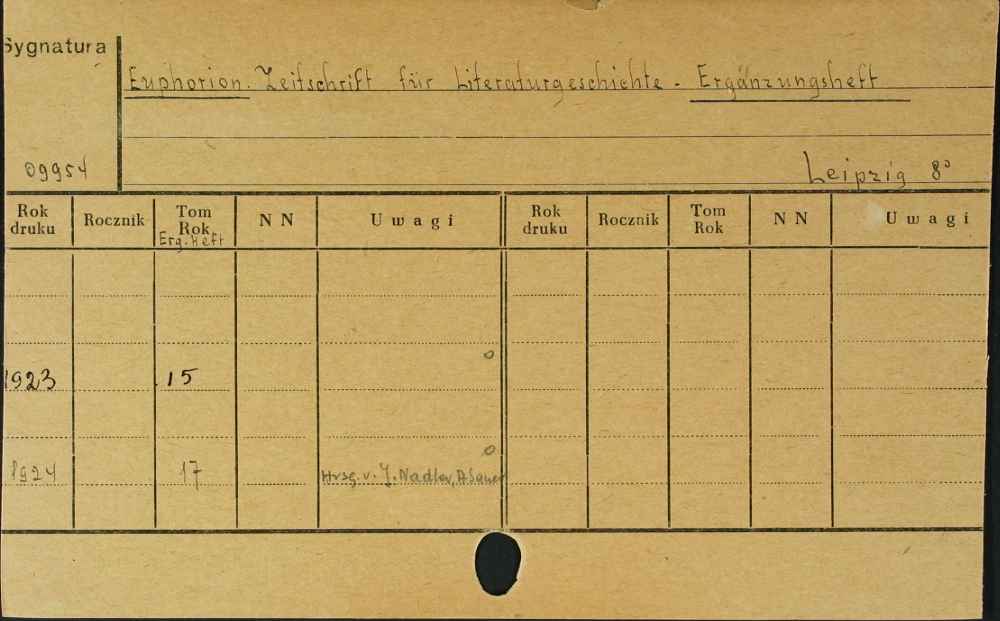 Sygnatura
Euphorion. Zeitschrift für Literaturgeschichte - Ergänzungsheft
09954
Leipzig 8°
Rok druku Rocznik Tom Rok Erg.Heft N N Uwagi Rok druku Rocznik Tom Rok N N Uwagi
1923 15
1924 17 Hrsg. v. J. Nadler, A Sauer